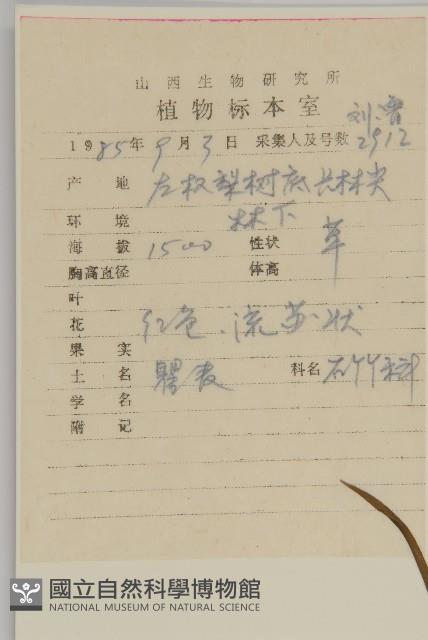 山西生物研究所
植物标本室
刘鲁
1985年9月3日 采集人及号数 2912
产 地 左权梨树底长林尖
环 境 林下
海 拔 1500 性状 草
胸高直径 体高
叶
花 红色、流苏状
果 实
土 名 瞿麦 科名 石竹科
学 名
附 记
國立自然科學博物館
NATIONAL MUSEUM OF NATURAL SCIENCE